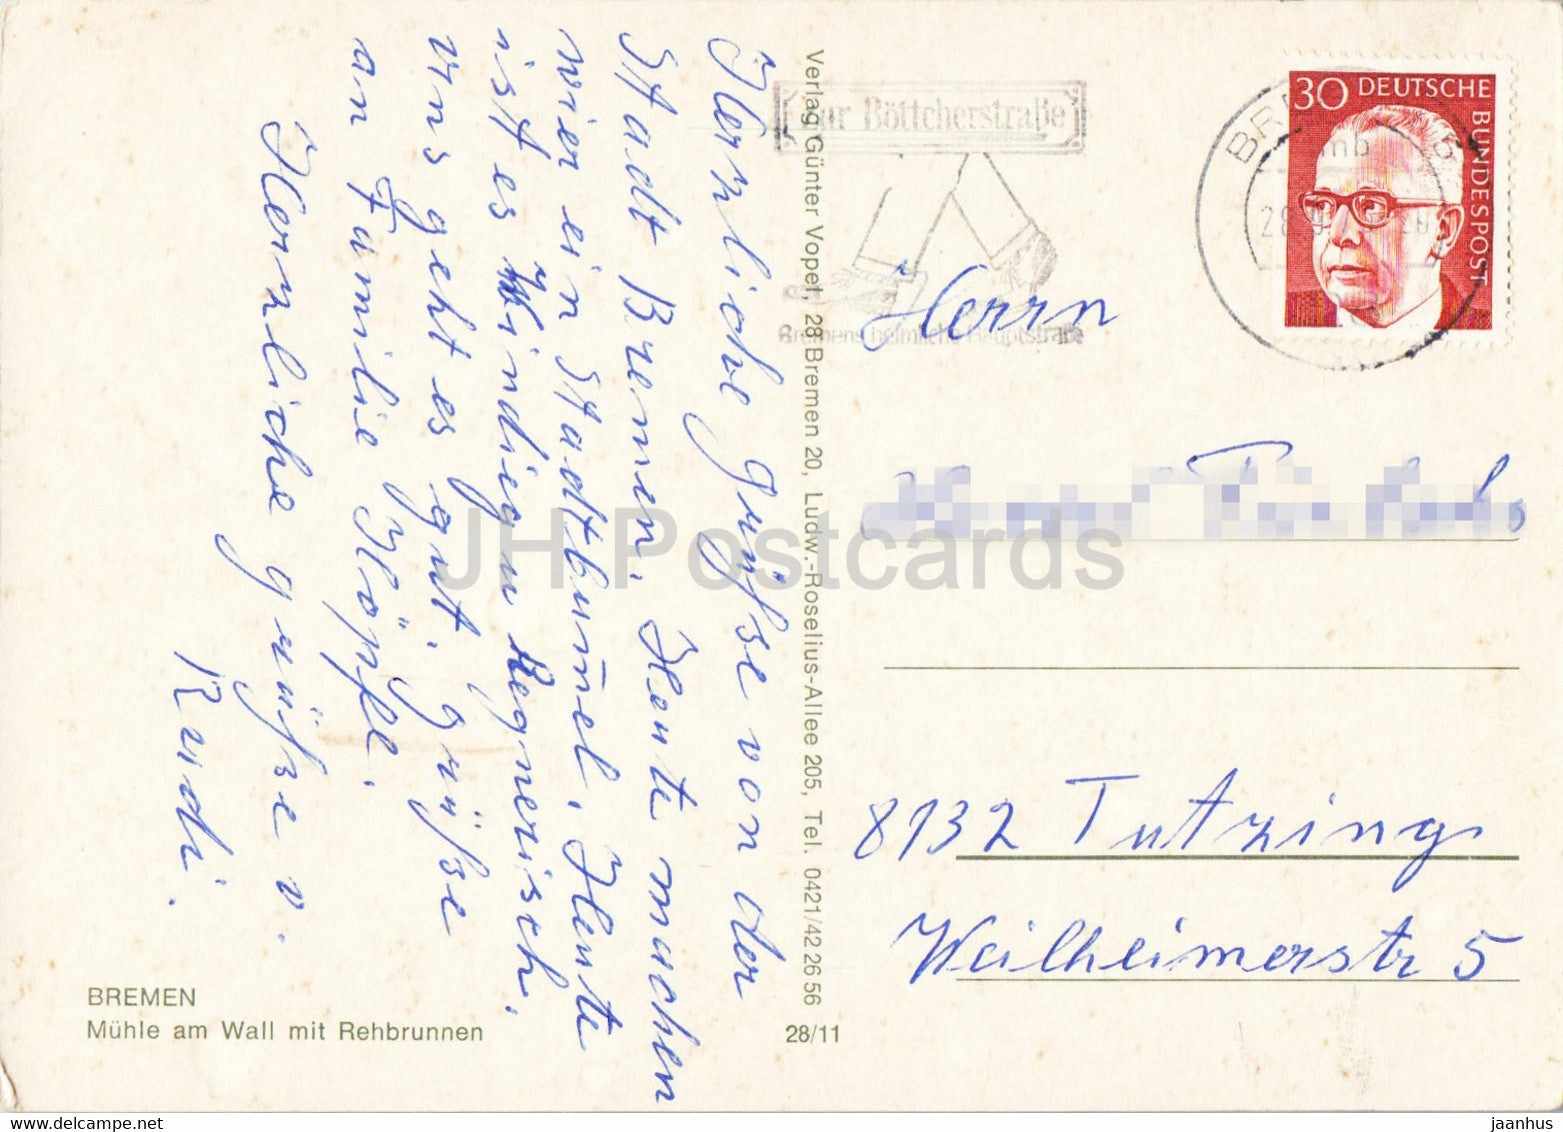 Herzliche grüße von der
Stadt Bremen. Heute machen
wier ein Stadtbummel. Heute
ist es Windig u Regnerisch.
Uns geht es gut. grüße
an Familie Höpfl.
Herzliche grüße v.
Rudi.
BREMEN
Mühle am Wall mit Rehbrunnen
Verlag Günter Vopel, 28 Bremen 20, Ludw.-Roselius-Allee 205, Tel. 0421/42 26 56
28/11
zur Böttcherstraße
Bremens heimliche Hauptstraße
30 DEUTSCHE
BUNDESPOST
Herrn
8132 Tutzing
Weilheimerstr 5
JH Postcards
jaanhus